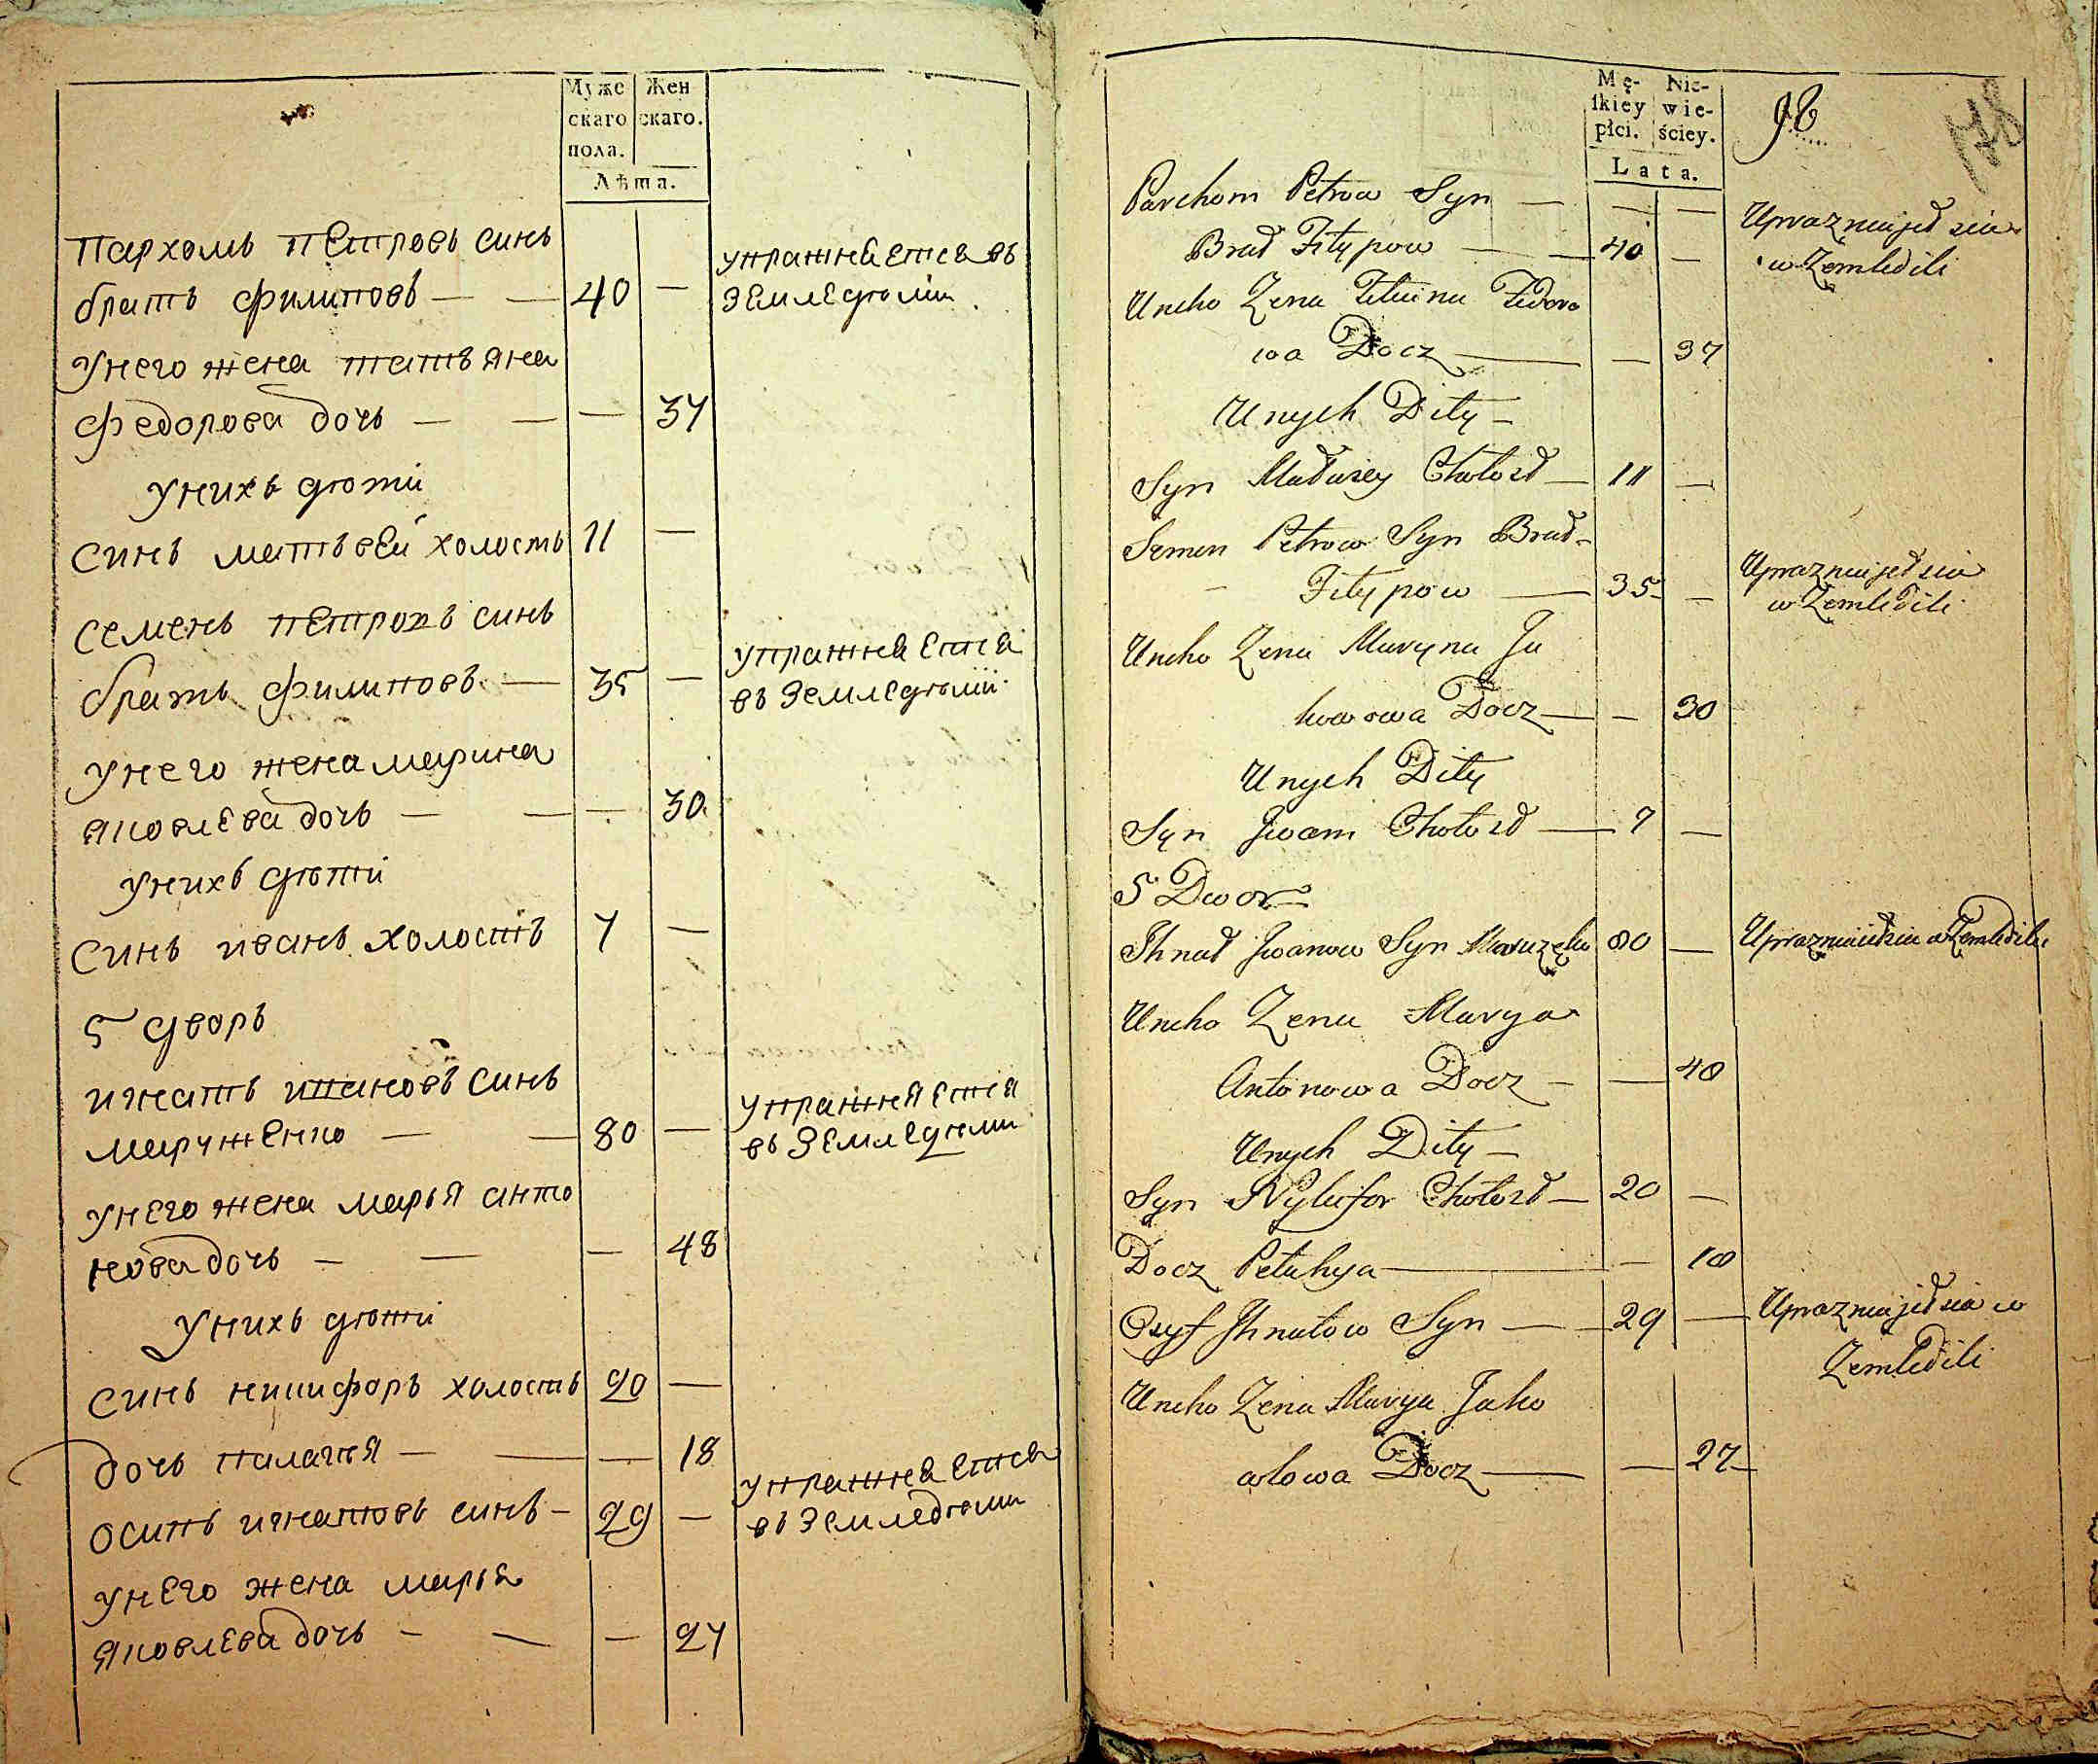 Муже
скаго
пола.
Жен
скаго.
Лѣта.
Пархомъ петровъ синъ
братъ филиповъ — — 40 —
упражняется въ
земледѣлии
унего жена татъяна
федорова дочь — — — 37
унихъ дѣти
синъ матъвей холостъ 11 —
семенъ петровъ синъ
братъ филиповъ — 35 —
упражняется
въ земледѣлии
унего жена марина
яковлева дочь — — — 30
унихъ дѣти
синъ иванъ холостъ 7 —
5 дворъ
игнатъ ивановъ синъ
маруженко — — 80 —
упражняется
въ земледѣлии
унего жена марья анто
нова дочь — — — 48
унихъ дѣти
синъ никифоръ холостъ 20 —
дочь палагея — — — 18
осипъ игнатовъ синъ — 29 —
упражняется
въ земледѣлии
унего жена марья
яковлева дочь — — — 27
Mę-
ſkiey
płci.
Nie-
wie-
ściey.
Lata.
Parchom Petrow Syn — — —
Brat Fitypow — — 40 —
Uprazniajet sia
w Zemledili
Uneho Zena Tetiana Fedoro
wa Docz — — 37
Unych Dity —
Syn Matwiey Chołost — 11 —
Semen Petrow Syn Brat —
Fitypow — 35 —
Uprazniajet sia
w Zemledili
Uneho Zena Maryna Ja
kowowa Docz — — 30
Unych Dity
Syn Jwam Chołost — 7 —
5 Dwor
Jhnat Jwanow Syn 80 —
Uneho Zena Marya
Antonowa Docz — — 48
Unych Dity —
Syn Nykifor Chołost — 20 —
Docz Petahya — — 18
Osyf Jhnatow Syn — — 29 —
Uprazniajet sia w
Zemledili
Uneho Zena Marya Jako
wlowa Docz — — 27